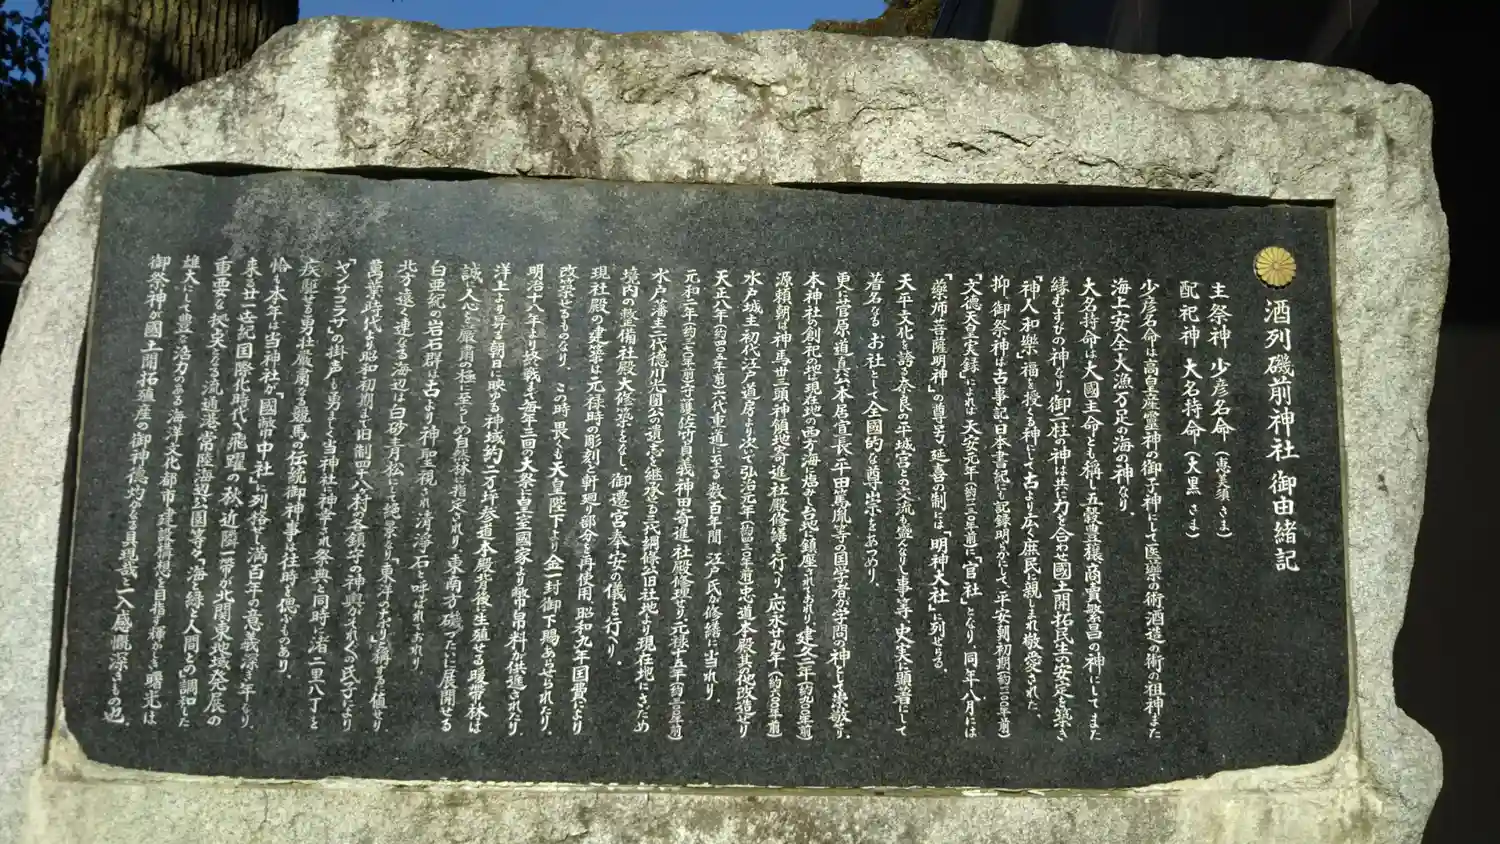 酒列磯前神社 御由緒記
主祭神 少彦名命(恵美須さま)
配祀神 大名持命(大黒さま)
少彦名命は高皇産霊神の御子神にして医薬の術酒造の術の祖神また
海上安全大漁万足の海の神なり、
大名持命は大國主命とも称し五穀豊穣商賣繁昌の神にしてまた
縁むすびの神なり御二柱の神は共に力を合わせ國土開拓民生の安定を築き
「神人和樂」福を授くる神にして古より広く庶民に親しまれ敬愛された、
抑御祭神は古事記日本書紀にも記録明らかにして平安朝初期(約一一〇〇年前)
「文徳天皇実録」によれば天安元年(約一一三〇年前)に「官社」となり、同年八月には
「薬师菩薩明神」の尊号を延喜の制には「明神大社」に列せらる、
天平文化を誇る奈良の平城宮との交流も盛んなりし事等史実に顕著にして
著名なるお社として全國的な尊崇をあつめり、
更に菅原道真公本居宣長平田篤胤等の国学者が学問の神として崇敬せり、
本神社の創祀の控は現在地の西方海に虚みしお地に鎮座されており建久二年(約八〇〇年前)
源頼朝は神馬卅三頭神領地寄進社殿修繕を行ふ応永廿九年(約六〇〇年前)
水戸城主初代江戸道房より次いで弘治元年(約四三〇年前)忠道本殿其の他改造せり
天正八年(約四〇〇年前)六代重道に至る数百年間江戸氏が修繕に当れり、
元和二年(約三七〇年前)守護佐竹良義神田寄進社殿修理せり元禄十五年(約三〇〇年前)
水戸藩主二代徳川光圀公の遺志を継承せる三代綱條は旧社地より現在地にさだめ
境内の整備社殿大修築をなし、御遷宮奉安の儀を行ふ、
現社殿の建築は元禄時の彫刻と軒廻り部分を再使用昭和九年国費により
改築せるものなり、この時畏くも天皇陛下より金一封御下賜あらせられたり、
明治十八年より終戦まで毎年三回の大祭に皇室國家より幣帛料が供進されたり、
洋上より昇る朝日に映ゆる神域約二万坪参道本殿背後に生殖せる暖帯林は
誠に人心を厳粛の極に至らしめ自然林に指定されり、東南方磯づたいに展開せる
白亜紀の岩石群は古より神聖視され清浄石と呼ばれておれり、
北方遠く連なる海辺は白砂青松にして絶景なり「東洋のナポリ」と称するに値せり、
萬葉時代より昭和初期まで旧制四八村の各鎮守の神輿がそれぞれの氏子により
「ヤンサコラサ」の掛声も勇ましく当神社に神幸され祭典と同時に渚二里八丁を
疾駆せる勇壮厳粛なる競馬の伝統御神事は往時を偲ぶものあり、
恰も本年は当神社が「國幣中社」に列格し満百年の意義深き年なり、
来る廿一世紀国際化時代へ飛躍の秋、近隣一帯が北関東地域発展の
重要な拠点となる流通港常陸海浜公園等々「海と緑と人間との」調和した
雄大にして豊な活力のある海洋文化都市建設構想を目指す輝かしき曙光は
御祭神が國土開拓殖産の御神徳灼かなる具現哉と一入感慨深きもの也、